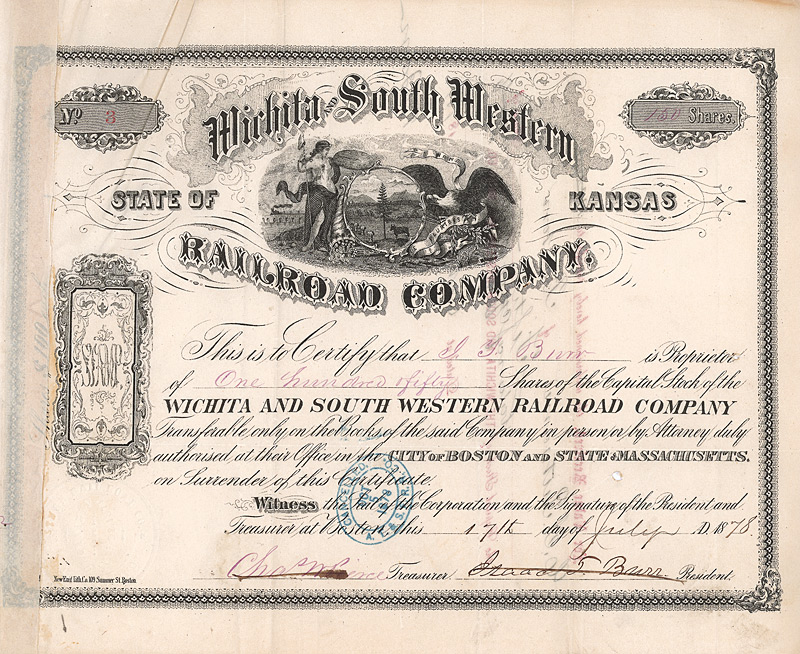 Wichita AND South Western
No 3
150 Shares.
STATE OF KANSAS
RAILROAD COMPANY.
$100
This is to Certify that I. T. Burr is Proprietor
of One hundred fifty Shares of the Capital Stock of the
WICHITA AND SOUTH WESTERN RAILROAD COMPANY
Transferable only on the Books of the said Company in person or by Attorney duly
authorised, at their Office in the CITY OF BOSTON AND STATE OF MASSACHUSETTS.
on Surrender of this Certificate.
Witness the Seal of the Corporation and the Signature of the President and
Treasurer at Boston this 17th day of July A.D. 1878
Treasurer Isaac T. Burr President.
New Engl. Lith. Co. 109 Summer St. Boston
CANCELLED